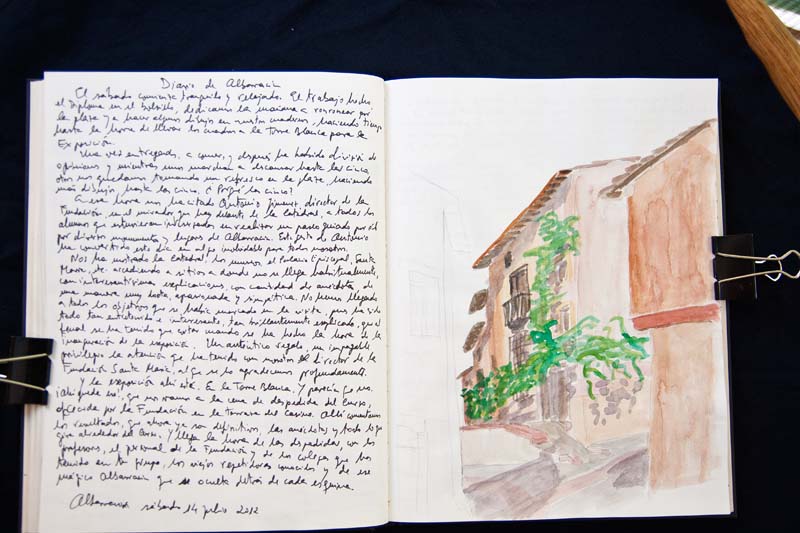 Diario de Albarracín
El sábado comienza tranquilo y relajado. El trabajo hecho,
el diploma en el bolsillo, dedicamos la mañana a por
la plaza y a hacer algunos dibujos en nuestros cuadernos, haciendo tiempo
hasta la hora de llevar los cuadros a la Torre Blanca para la
Exposición.
Una vez entregados, a comer, y después ha habido división de
opiniones y mientras unos marchan a descansar hasta las cinco,
otros nos quedamos tomando un refresco en la plaza, haciendo
más dibujos, hasta las cinco. ¿Por qué las cinco?
A esa hora nos ha citado Antonio Jimenez, director de la
Fundación, en el mirador que hay delante de la Catedral, a todos los
alumnos que estuvieran interesados en realizar un paseo guiado por él
por diversos monumentos y lugares de Albarracín. Este gesto de Antonio
ha convertido este día en algo inolvidable para todos nosotros.
Nos ha mostrado la Catedral, los museos, el Palacio Episcopal, Santa
María, etc. accediendo a sitios a donde no se llega habitualmente,
con interesantísimas explicaciones, con cantidad de anécdotas, de
una manera muy docta, apasionada y simpática. No hemos llegado
a todos los objetivos que se había marcado en la visita, pues ha sido
todo tan entretenido e interesante, tan brillantemente explicado, que al
final se ha tenido que cortar cuando se ha hecho la hora de la
inauguración de la exposición. Un auténtico regalo, un impagable
privilegio la atención que ha tenido con nosotros el director de la
Fundación Santa María, al que se lo agradecemos profundamente.
Y la exposición ahí está. En la Torre Blanca. Y parecía que no.
¡Ahí queda eso!, que nos vamos a la cena de despedida del curso,
ofrecida por la Fundación en la terraza del Casino. Allí comentamos
los resultados, que ahora ya son definitivos, las anécdotas y todo lo que
gira alrededor del curso. Y llega la hora de las despedidas, con los
profesores, el personal de la Fundación y de los colegas que hemos
tenido en el grupo, los viejos repetidores conocidos y de ese
mágico Albarracín que se oculta detrás de cada esquina.
Albarracín sábado 14 julio 2012